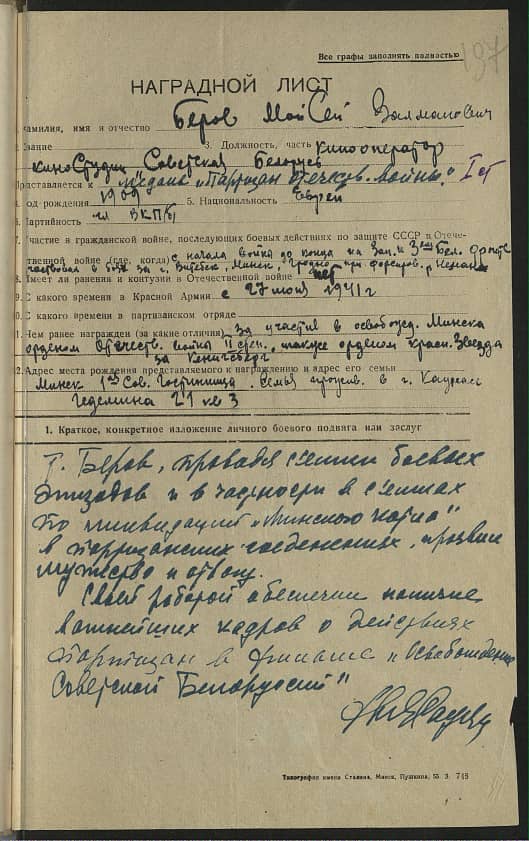 197
Все графы заполнять полностью
НАГРАДНОЙ ЛИСТ
фамилия, имя и отчество Беров Мойсей Залманович
Звание 3. Должность, часть Кинооператор
киностудии Советская Беларусь
Представляется к медали „Партизан отечеств. войны" I ст
4. Год рождения 1909 5. Национальность Еврей
6. Партийность чл ВКП/б/
7. Участие в гражданской войне, последующих боевых действиях по защите СССР и Отече-
ственной войне (где, когда) с начала войны до конца на Зап. и 3ем Бел. фронте
участвовал в боях за г. Витебск, Минск, Гродно при форсиров. р. Неман
8. Имеет ли ранения и контузии в Отечественной войне нет
9. С какого времени в Красной Армии с 27 июня 1941 г
10. С какого времени в партизанском отряде
11. Чем ранее награжден (за какие отличия) За участие в освобожд. Минска
орденом Отечеств. войны II степ., также орденом красн. Звезда
за Кенигсберг
12. Адрес места рождения представляемого к награждению и адрес его семьи
Минск 1ая Сов. Гостиница. Семья прожив. в г. Каунас
Гедемина 21 кв 3
1. Краткое, конкретное изложение личного боевого подвига или заслуг
Т. Беров, проводя с'емки боевых
эпизодов и в частности в с'емках
по ликвидации „Минского котла"
в партизанских соединениях, проявил
мужество и отвагу.
Своей работой обеспечил наличие
важнейших кадров о действиях
партизан в фильме „Освобождение
Советской Белоруссии"
Типография имени Сталина, Минск, Пушкина, 55 З. 748